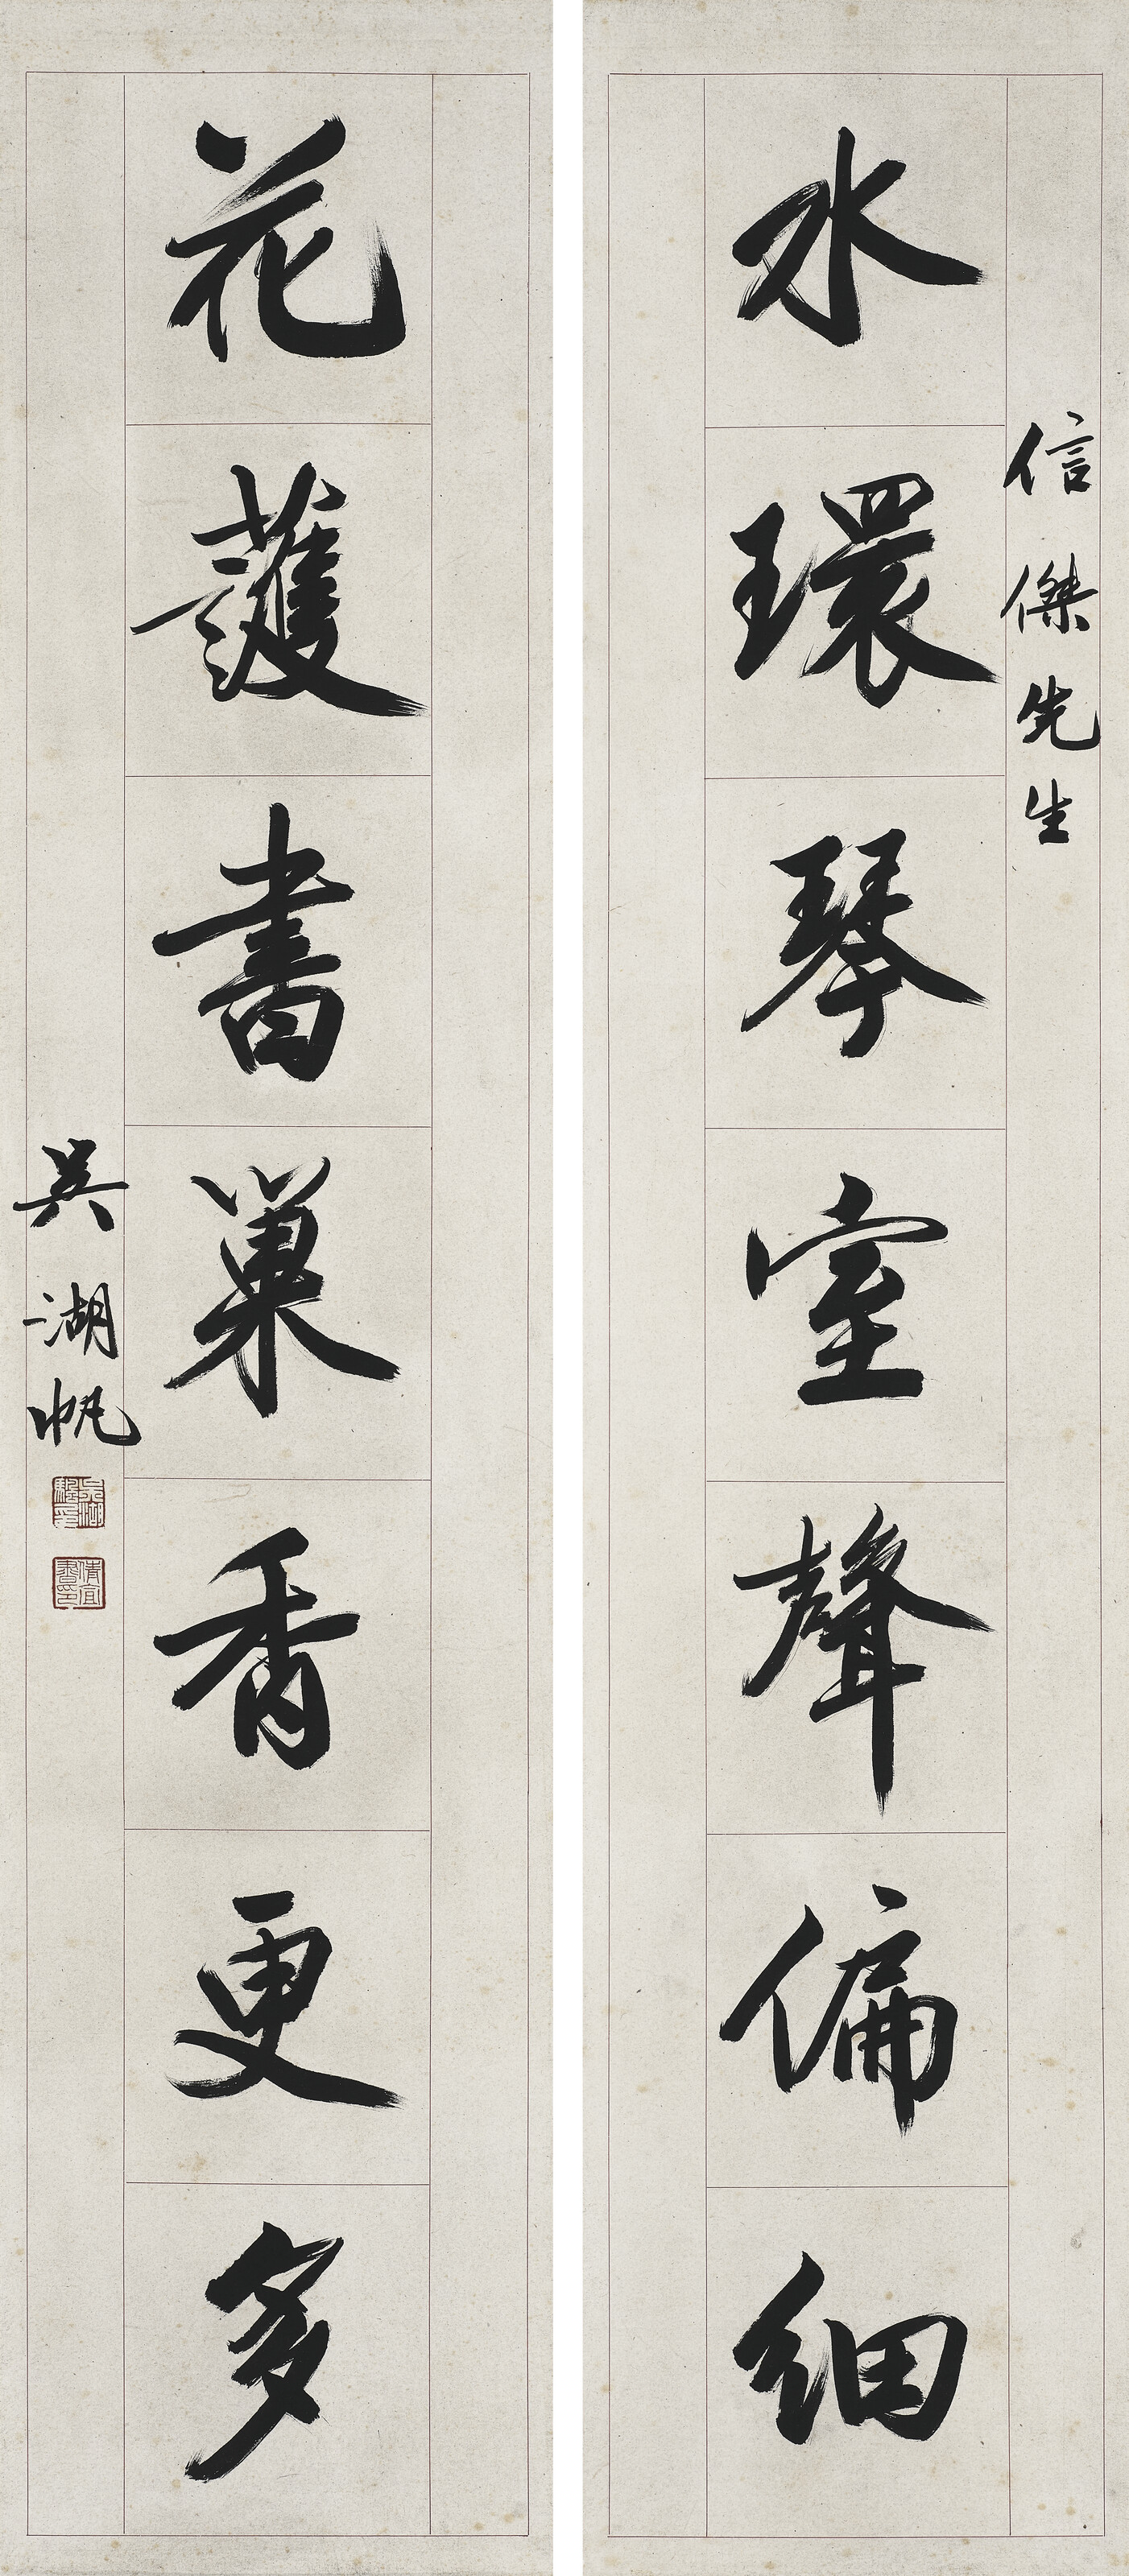 信傑先生
水環琴室聲偏細
花護書巢香更多
吳湖帆